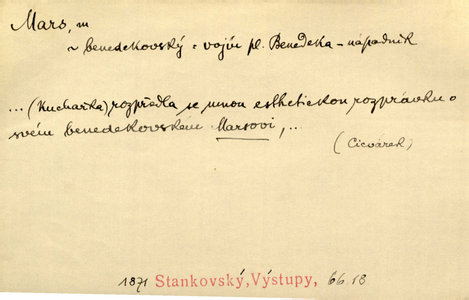 Mars, m
~ benedekovský : voják pl. Benedeka - nápadník
... (Kuchařka) rozpředla se mnou esthetickou rozprávku o
svém benedekovském Marsovi, ..
(Cicvárek)
1871 Stankovský, Výstupy, 66.18